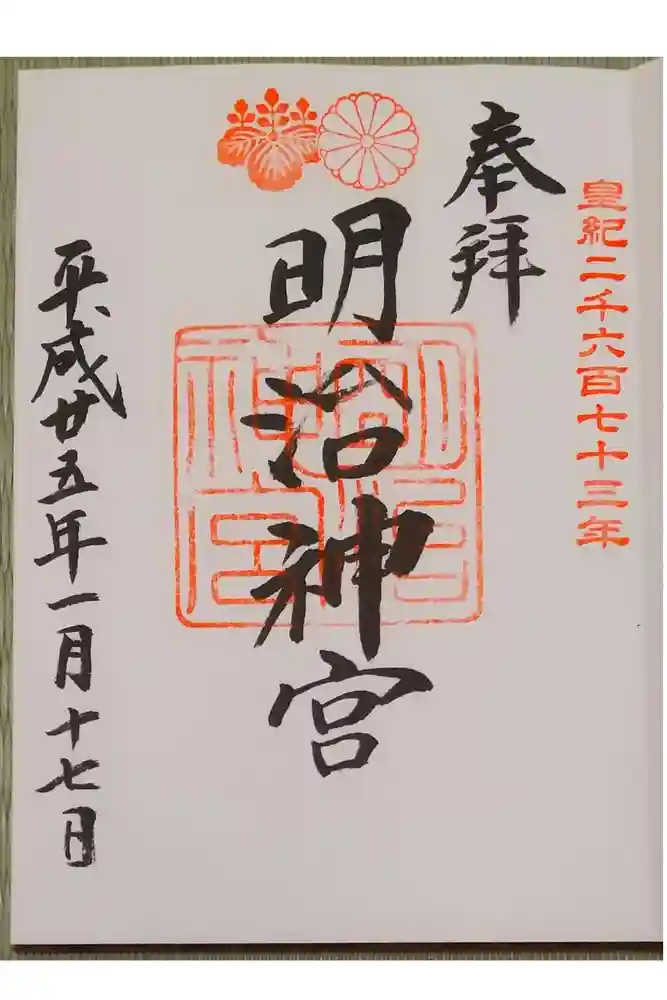 皇紀二千六百七十三年
奉拝
明治神宮
明治神宮
平成廿五年一月十七日